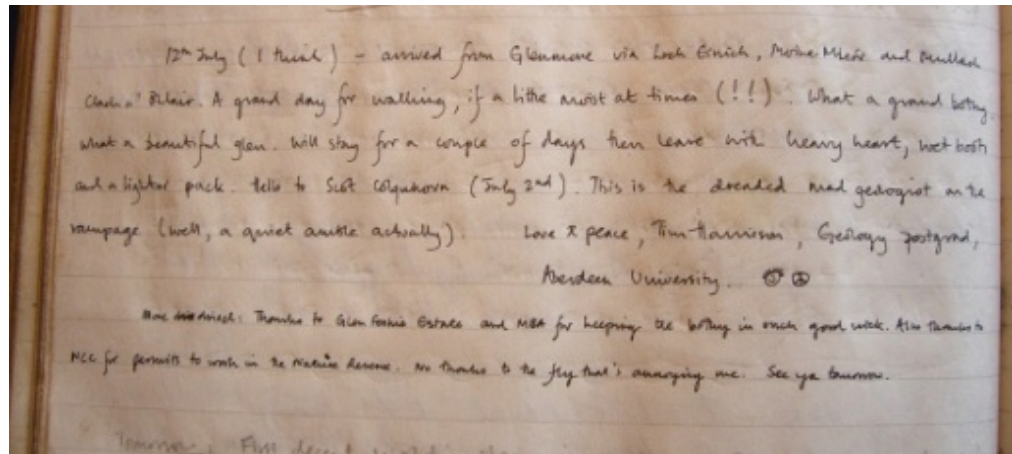 12th July (I think) - arrived from Glenmore via Loch Einich, Moine Mhor and Mullach
Clach a' Bhlair. A grand day for walking, if a little moist at times (!!). What a grand bothy,
what a beautiful glen. Will stay for a couple of days then leave with heavy heart, wet boots
and a lighter pack. Hello to Scot Colquhoun (July 2nd). This is the dreaded mad geologist on the
rampage (well, a quiet amble actually). Love & peace, Tim Harrison, Geology postgrad,
Aberdeen University.
Thanks to Glen Feshie Estate and MBA for keeping the bothy in such good nick. Also thanks to
NCC for permits to work in the Nature Reserve. No thanks to the fly that's annoying me. See ya tomorrow.
Tomorrow, First decent